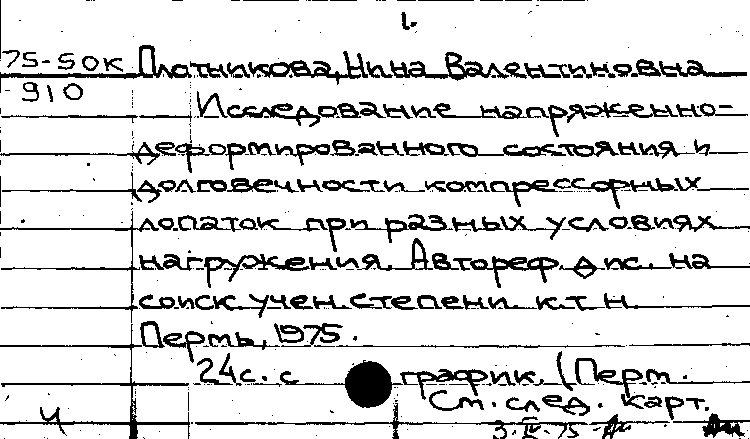 1.
75-50к Плотникова, Нина Валентиновна
910
Исследование напряженно-
деформированного состояния и
долговечности компрессорных
лопаток при разных условиях
нагружения. Автореф. дис. на
соиск. учен. степени к. т. н.
Пермь, 1975.
24с. с график. (Перм.
См. след. карт.
Ч
3. IV. 75